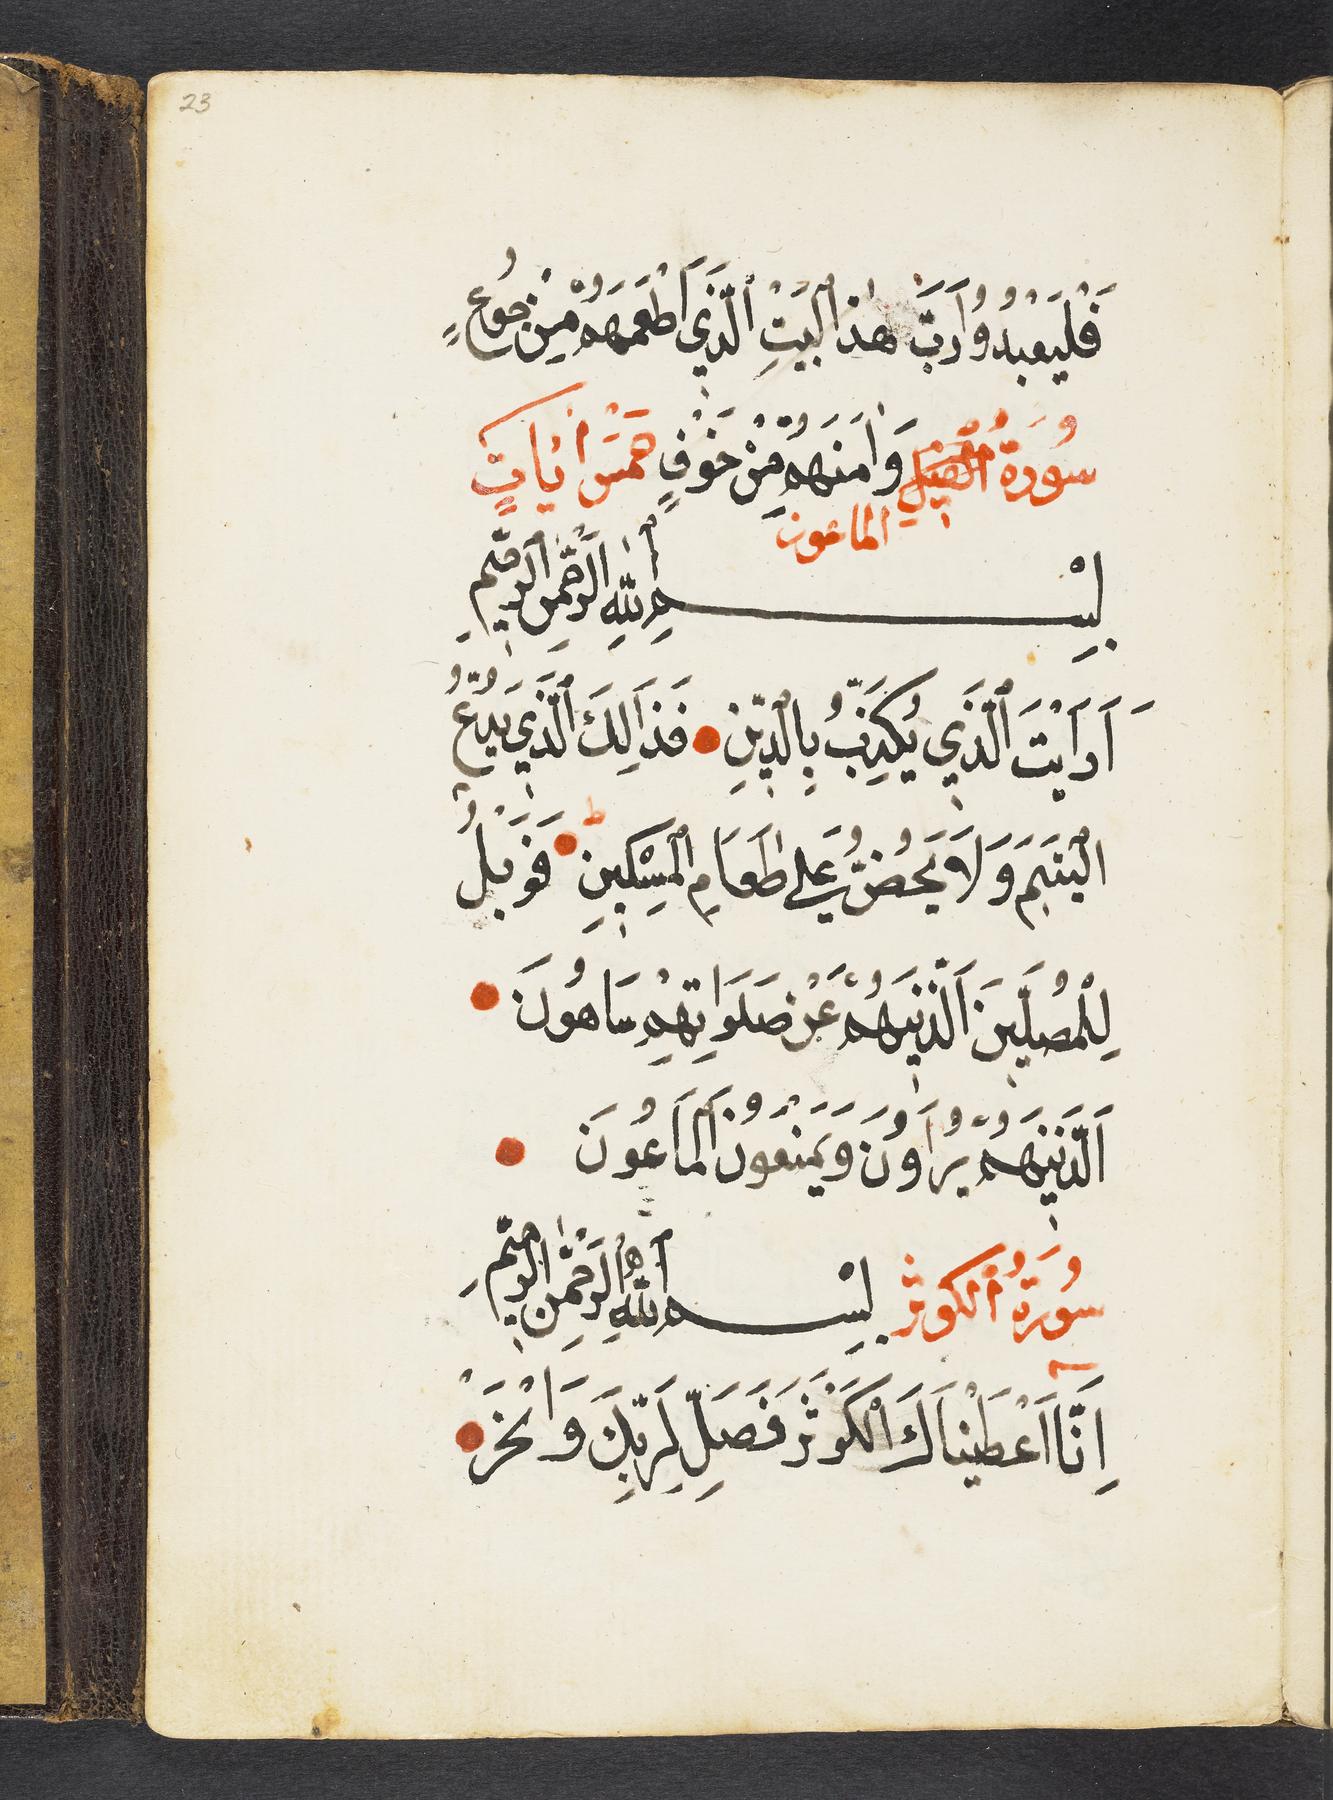 23
فَلْيَعْبُدُوا رَبَّ هٰذَا الْبَيْتِ الَّذِي اَطْعَمَهُمْ مِنْ جُوعٍ
سُورَةُ الْفِيلِ وَاٰمَنَهُمْ مِنْ خَوْفٍ خَمْسَ اٰيَاتٍ
الماعون
بِسْمِ اللّٰهِ الرَّحْمٰنِ الرَّحِيمِ
اَرَاَيْتَ الَّذِي يُكَذِّبُ بِالدِّينِ فَذَالِكَ الَّذِي يَدُعُّ
الْيَتِيمَ وَلَا يَحُضُّ عَلٰى طَعَامِ الْمِسْكِينِ ط فَوَيْلٌ
لِلْمُصَلِّينَ اَلَّذِينَ هُمْ عَنْ صَلَوَاتِهِمْ سَاهُونَ
اَلَّذِينَ هُمْ يُرَاوُنَ وَيَمْنَعُونَ الْمَاعُونَ
سُورَةُ الكوثر بِسْمِ اللّٰهِ الرَّحْمٰنِ الرَّحِيمِ
اِنَّا اَعْطَيْنَاكَ الْكَوْثَرَ فَصَلِّ لِرَبِّكَ وَانْحَرْ